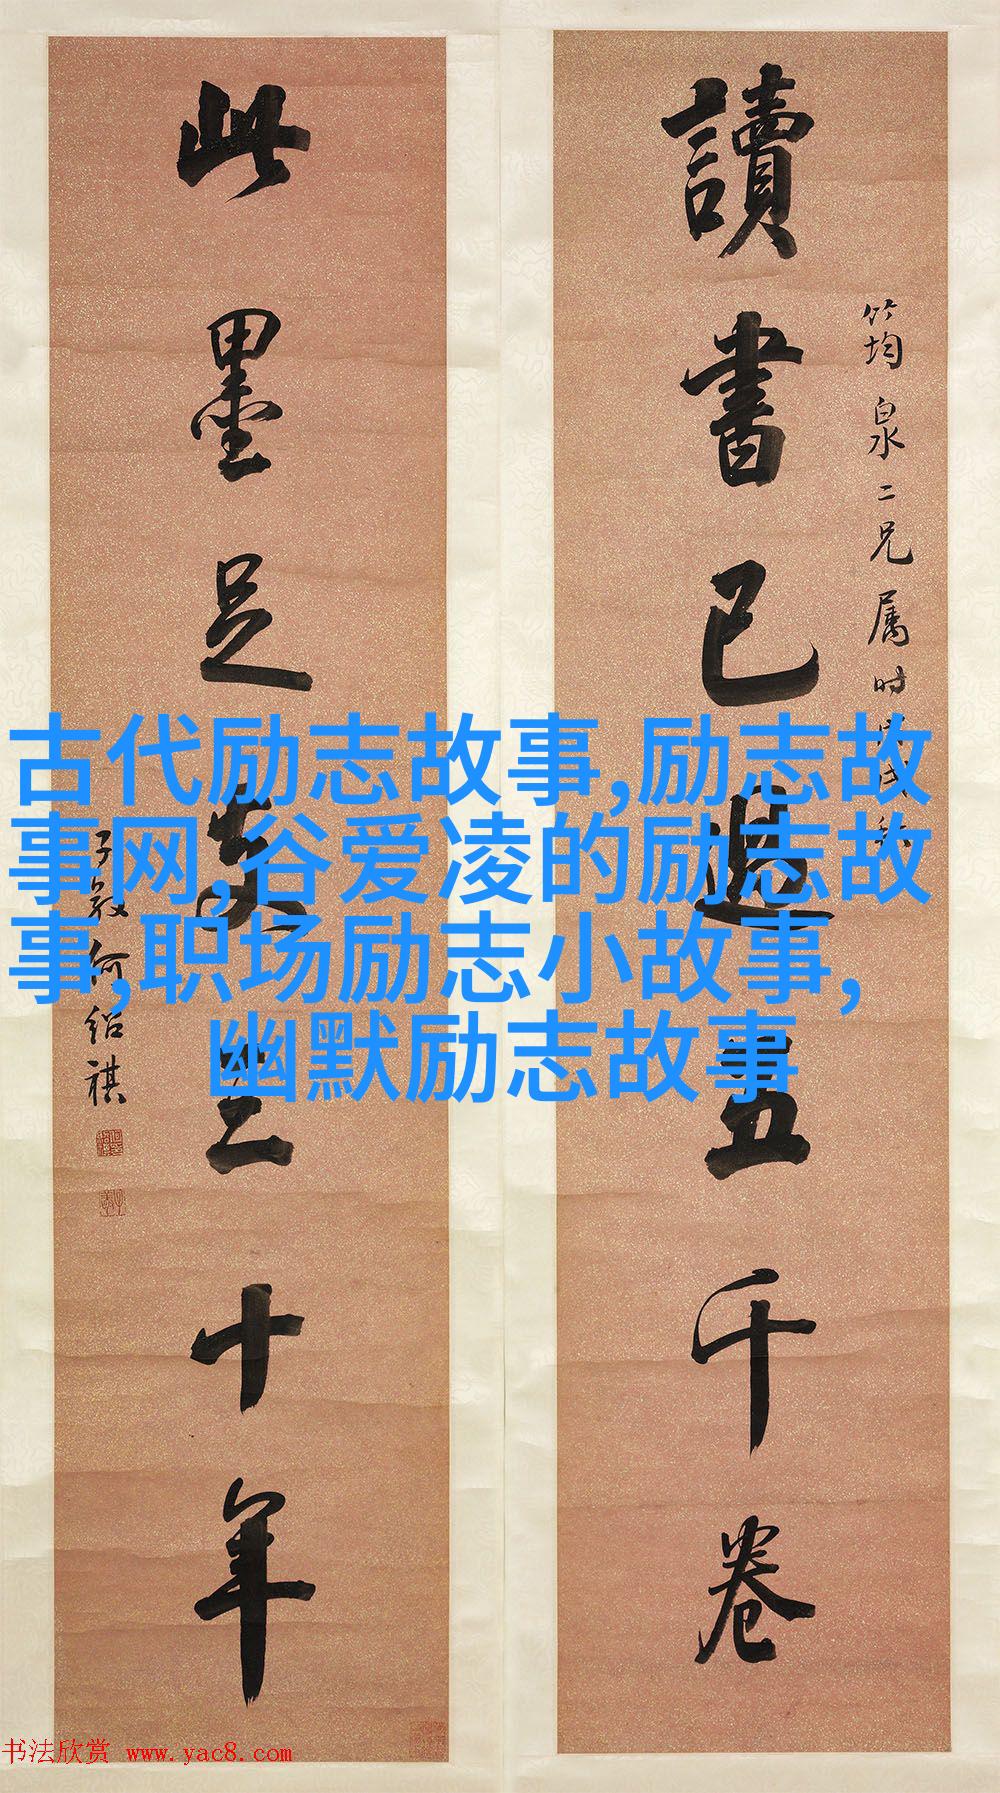 讀書已過五千卷
筠泉二兄属时
此墨足支三十年
何紹祺
古代励志故事,励志故
事网,谷爱凌的励志故
事,职场励志小故事,
幽默励志故事
书法欣赏 www.yac8.com